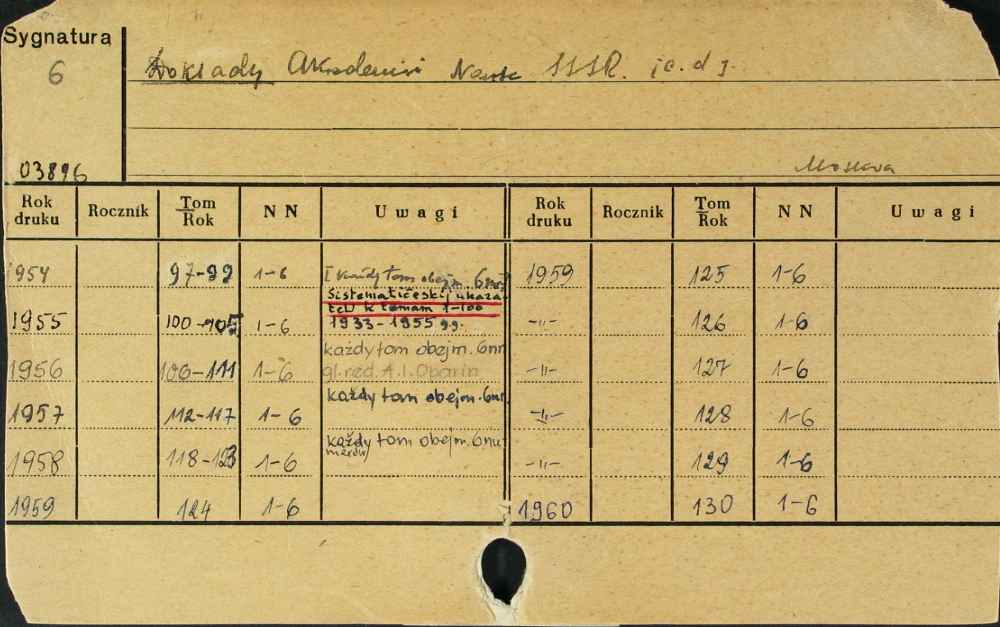 Sygnatura
6
Dokłady Akademii Nauk SSSR. (c.d.).
03896
Moskwa
Rok druku Rocznik Tom/Rok NN Uwagi Rok druku Rocznik Tom/Rok NN Uwagi
1954 97-99 1-6 każdy tom obejm. 6 1959 125 1-6
Sistematičeskij ukaza-
tel' k tomam 1-100
1955 100-105 1-6 1933-1955 gg. -"- 126 1-6
każdy tom obejm. 6nr
1956 106-111 1-6 gl. red. A.I. Oparin -"- 127 1-6
każdy tom obejm. 6nr.
1957 112-117 1-6 -"- 128 1-6
każdy tom obejm. 6 nu-
merów
1958 118-123 1-6 -"- 129 1-6
1959 124 1-6 1960 130 1-6